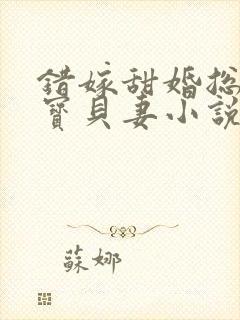 錯嫁甜婚總
寶貝妻小說
蘇娜